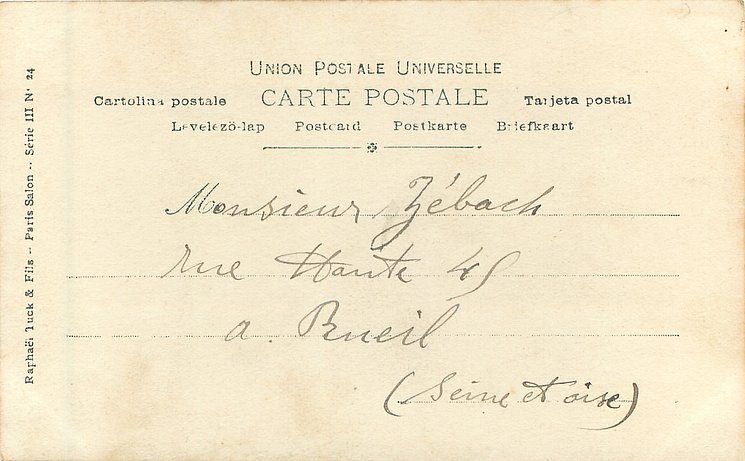 UNION POSTALE UNIVERSELLE
Cartolina postale CARTE POSTALE Tarjeta postal
Levelezö-lap Postcard Postkarte Briefkaart
Monsieur Zébach
rue Haute 45
a. Rueil
(Seine et oise)
Raphaël Tuck & Fils -- Paris Salon -- Série III N° 24